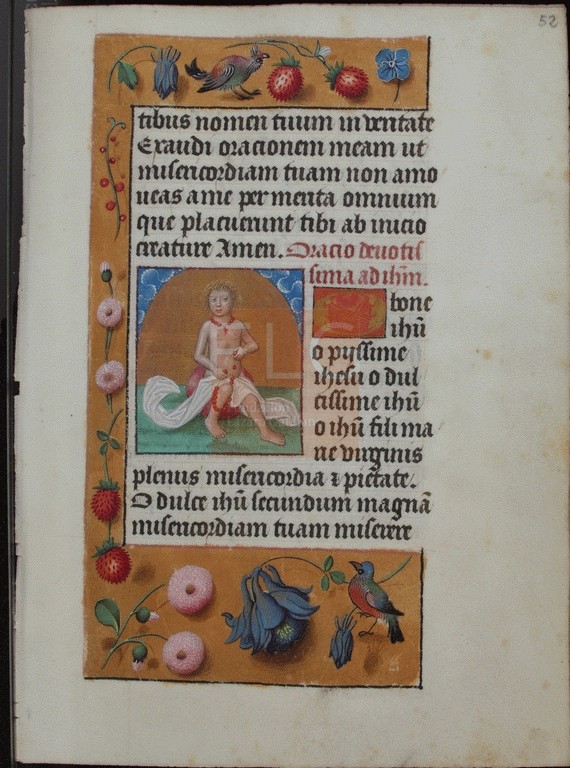 52
tibus nomen tuum in veritate
Exaudi oracionem meam ut
misericordiam tuam non amo
veas a me per merita omnium
que placuerunt tibi ab inicio
creature Amen. Oracio devotis
sima ad ihm̄.
bone
ihū
o pyssime
ihesu o dul
cissime ihū
o ihū fili ma
rie virginis
plenus misericordia ⁊ pietate.
O dulce ihū secundum magnā
misericordiam tuam miserere
FLG